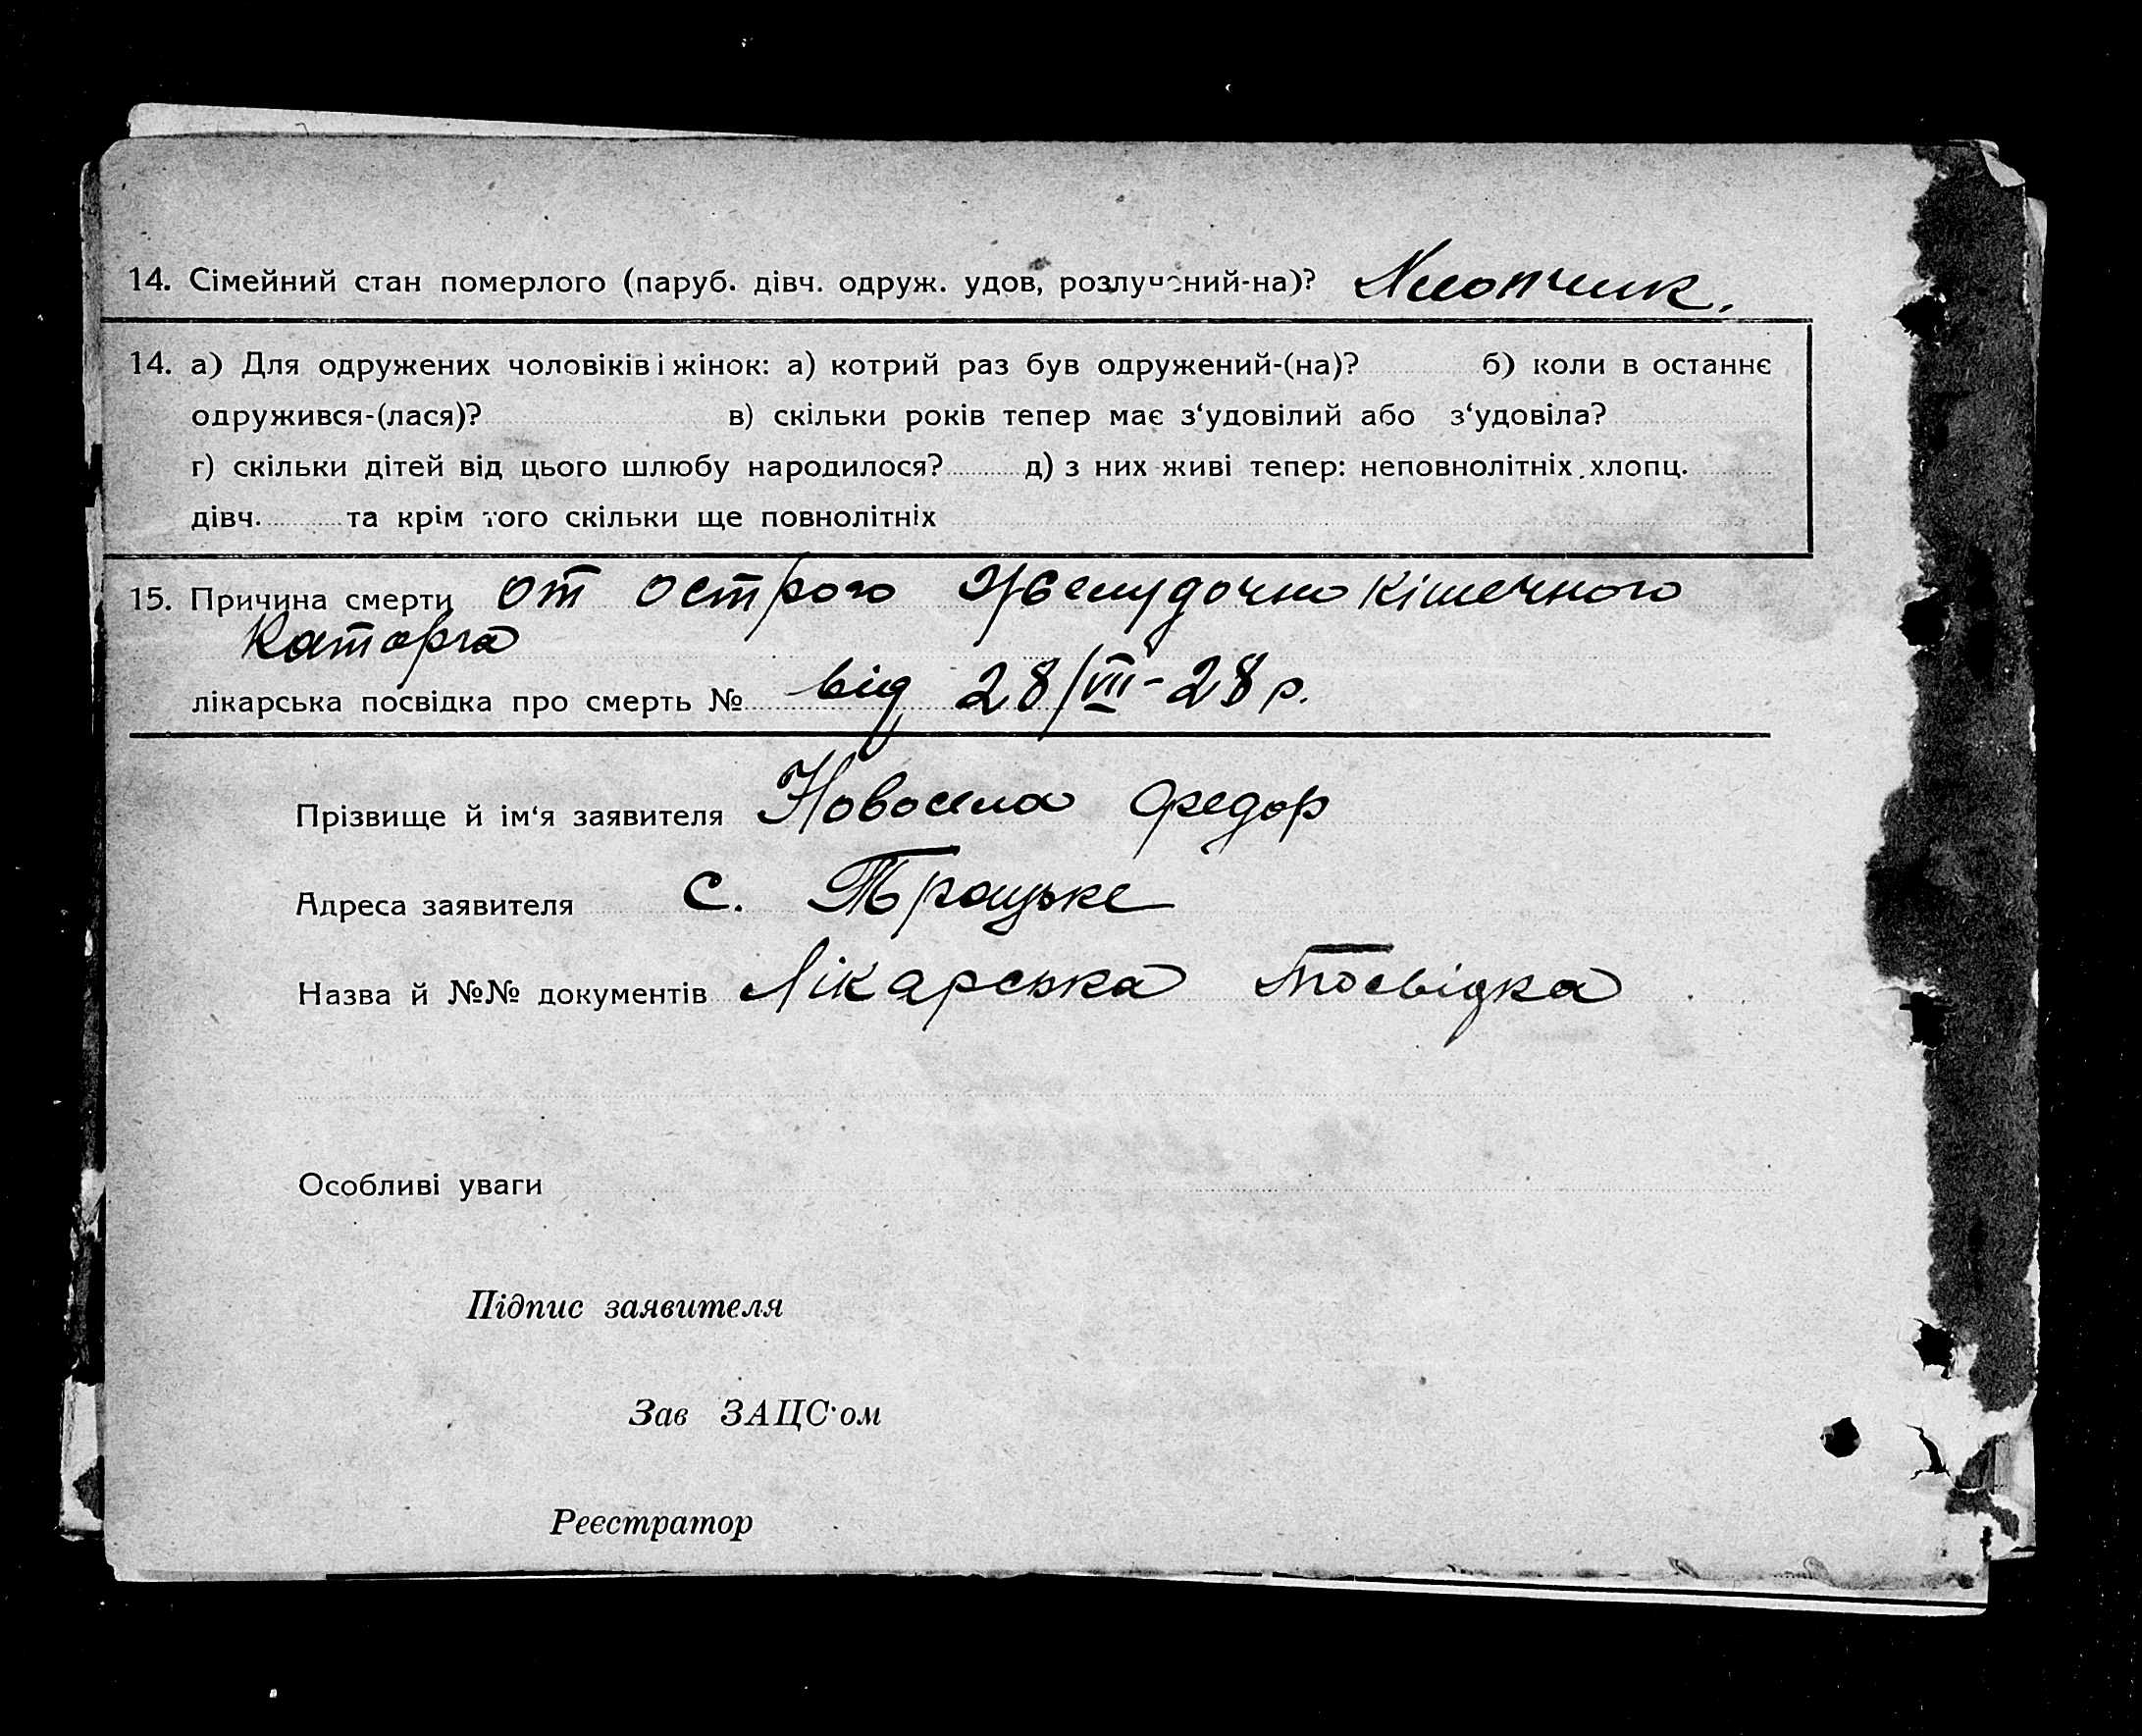 14. Сімейний стан померлого (паруб. дівч. одруж. удов, розлучений-на)? Хлопчик.
14. а) Для одружених чоловіків і жінок: а) котрий раз був одружений-(на)? б) коли в останнє
одружився-(лася)? в) скільки років тепер має з‘удовілий або з‘удовіла?
г) скільки дітей від цього шлюбу народилося? д) з них живі тепер: неповнолітніх хлопц.
дівч. та крім того скільки ще повнолітніх
15. Причина смерти от острого Желудочно кішечного
Каторга
лікарська посвідка про смерть № від 28/VIII-28 р.
Прізвище й ім‘я заявителя Новосела Федор
Адреса заявителя с. Троцьке
Назва й №№ документів Лікарська посвідка
Особливі уваги
Підпис заявителя
Зав ЗАЦС'ом
Реєстратор